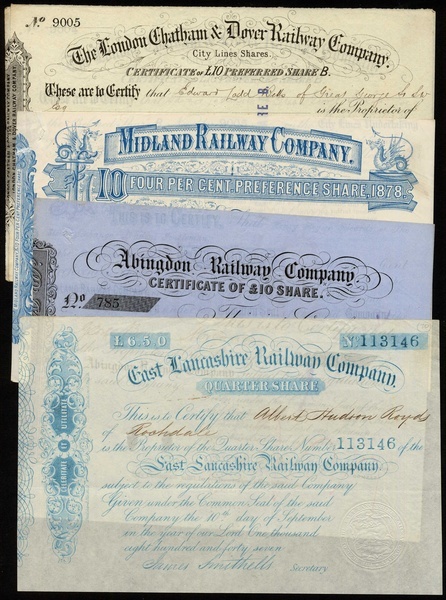 No. 9005
The London Chatham & Dover Railway Company.
City Lines Shares.
CERTIFICATE of £10 PREFERRED SHARE B.
These are to Certify that Edward of Great George St
Esq is the Proprietor of
MIDLAND RAILWAY COMPANY.
10 FOUR PER CENT PREFERENCE SHARE, 1878.
Abingdon Railway Company
CERTIFICATE OF £10 SHARE.
No. 785
£6.5.0 No. 113146
East Lancashire Railway Company,
QUARTER SHARE
This is to Certify that Albert Hudson Royds
of Rochdale
is the Proprietor of the Quarter Share Number 113146 of the
East Lancashire Railway Company,
subject to the regulations of the said Company
Given under the Common Seal of the said
Company the 10th day of September
in the year of our Lord One thousand
eight hundred and forty seven
James Smithells Secretary